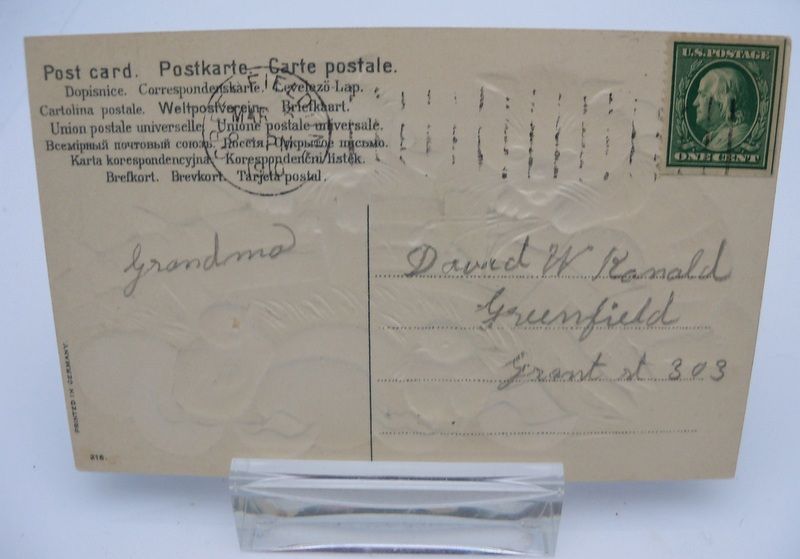 Post card. Postkarte. Carte postale.
Dopisnice. Correspondenzkarte. Levelező-Lap.
Cartolina postale. Weltpostverein. Briefkaart.
Union postale universelle. Unione postale universale.
Всемірный почтовый союзъ. Россія. Открытое письмо.
Karta korespondencyjna. Korespondenční lístek.
Brefkort. Brevkort. Tarjeta postal.
MAR
U.S. POSTAGE
ONE CENT
Grandma
David W Ronald
Greenfield
Grant st 303
PRINTED IN GERMANY.
216.